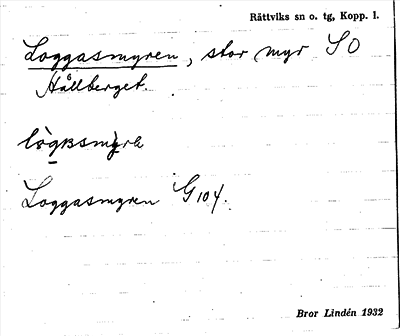 Rättviks sn o. tg, Kopp. l.
Loggasmyren, stor myr SO
Hållberget.
Loggasmyren G104.
Bror Lindén 1932